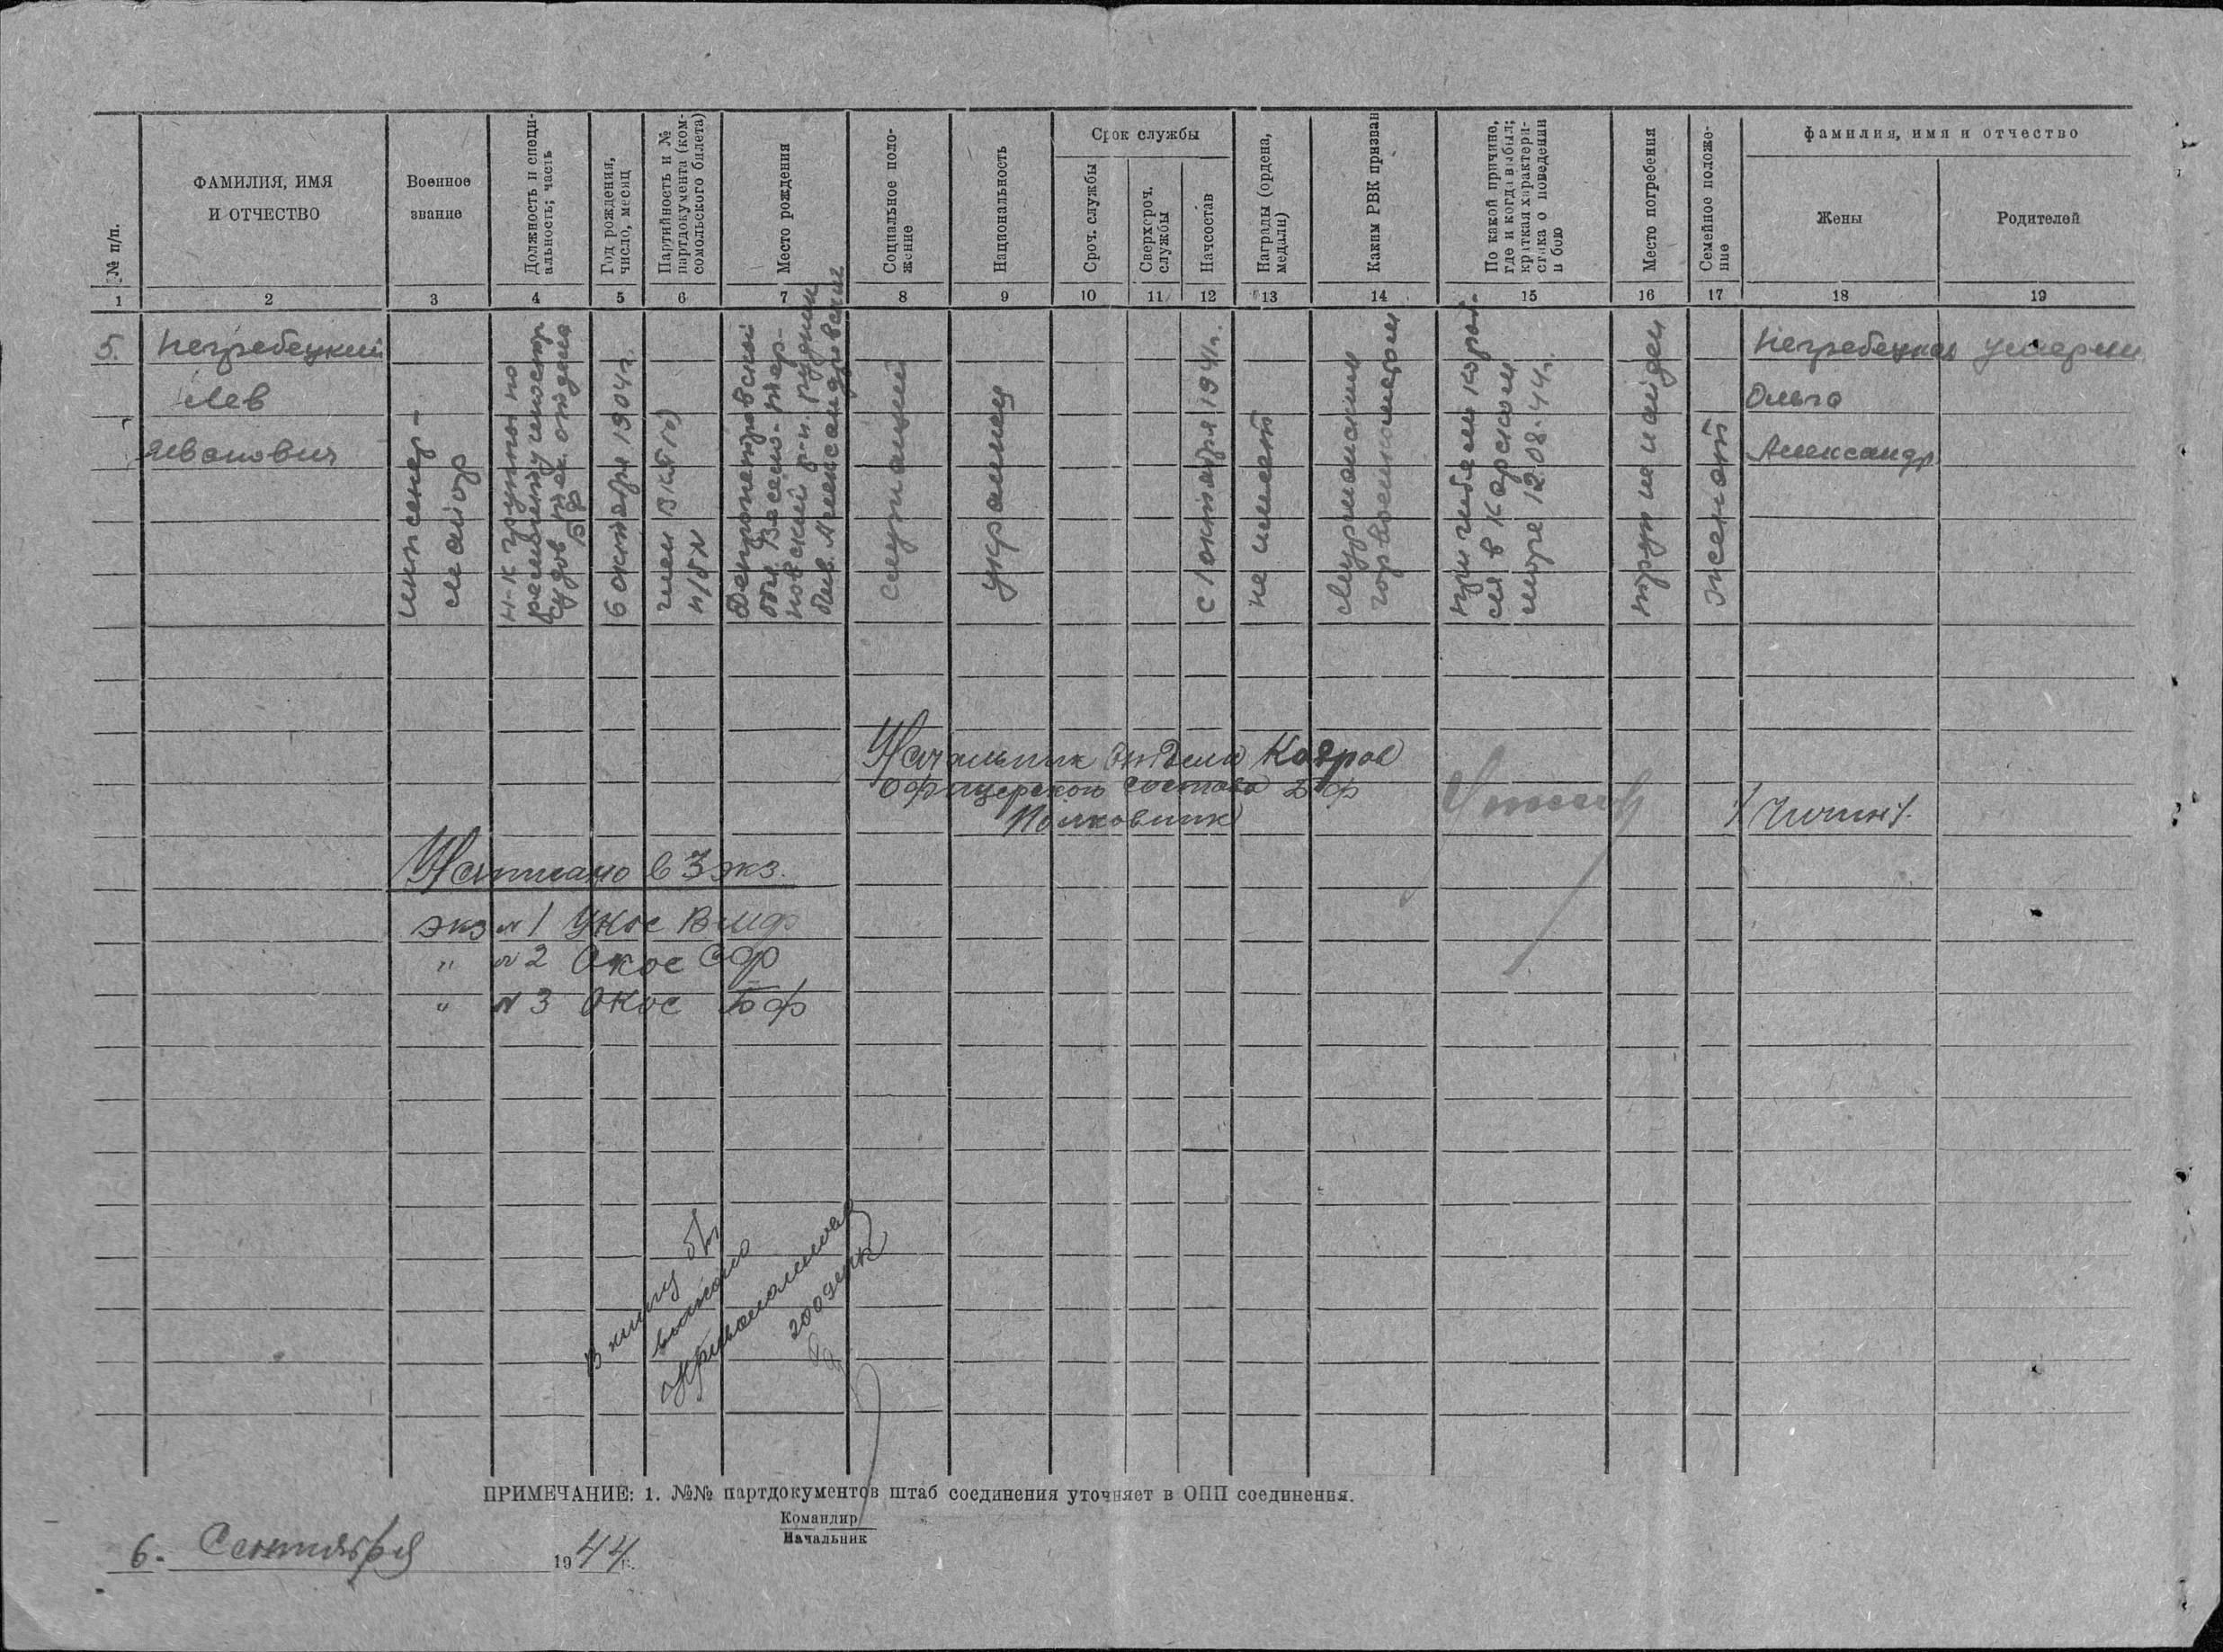 № п/п.
ФАМИЛИЯ, ИМЯ
И ОТЧЕСТВО
Военное
звание
Должность и специ-
альность; часть
Год рождения,
число, месяц
Партийность и №
партдокумента (ком-
сомольского билета)
Место рождения
Социальное поло-
жение
Национальность
Срок службы
Сроч. службы
Сверхсроч.
службы
Начсостав
Награды (ордена,
медали)
Каким РВК призван
По какой причине,
где и когда выбыл;
краткая характери-
стика о поведении
в бою
Место погребения
Семейное положе-
ние
фамилия, имя и отчество
Жены
Родителей
1 2 3 4 5 6 7 8 9 10 11 12 13 14 15 16 17 18 19
5.
Негребецкий
Лев
Иванович
инженер-
майор
н-к группы по
ремонту иностр
судов тех. отдела
БФ
6 октября 1904 г.
член ВКП(б)
п/б №
Днепропетровской
обл. Васено-Тер-
новский р-н. Рудник
быв. Александровский
служащий
украинец
с 1 октября 1941 г.
не имеет
Мурманским
горвоенкоматом
при гибели кораб-
ля в Карском
море 12.08.44 г.
труп не найден
женат
Негребецкая
Ольга
Александр
умерли
Начальник Отдела Кадров
Офицерского состава БФ
Полковник
Написано в 3 экз.
экз № 1 УКОС ВМФ
" № 2 ОКОС СФ
" № 3 ОКОС БФ
В книгу
ПРИМЕЧАНИЕ: 1. №№ партдокументов штаб соединения уточняет в ОПП соединения.
Командир
Начальник
6. Сентября 1944 г.